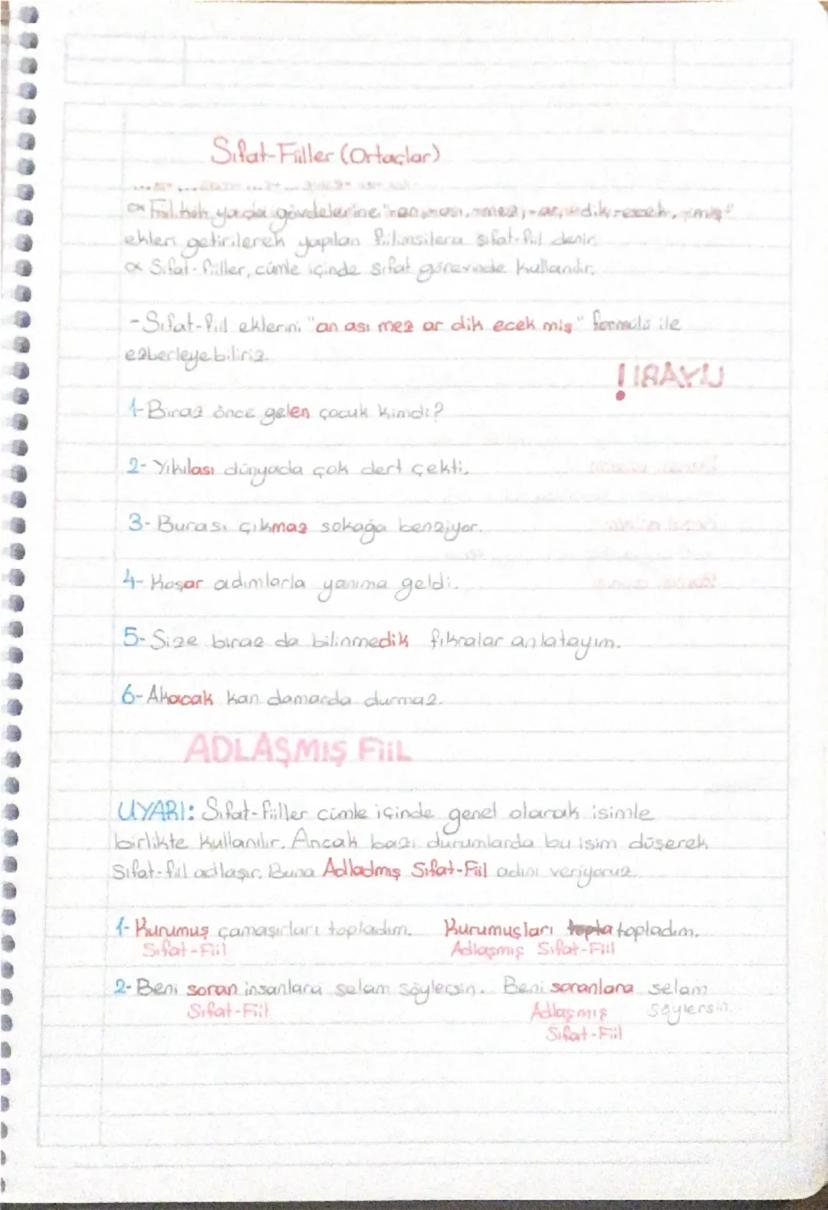 Sıfat-Fiiller (Ortaçlar)
∝ Fiil kök ya da gövdelerine "-an, -ası, -mez, -ar, -dik, -ecek, -miş"
ekleri getirilerek yapılan fiilimsilere sıfat-fiil denir.
∝ Sıfat-fiiller, cümle içinde sıfat görevinde kullanılır.
-Sıfat-fiil eklerini "an ası mez ar dik ecek miş" formülü ile
ezberleyebiliriz.
1-Biraz önce gelen çocuk kimdi?
2- Yıkılası dünyada çok dert çekti.
3- Burası çıkmaz sokağa benziyor.
4- Koşar adımlarla yanıma geldi.
5- Size biraz da bilinmedik fıkralar anlatayım.
6- Akacak kan damarda durmaz.
ADLAŞMIŞ FİİL
UYARI: Sıfat-fiiller cümle içinde genel olarak isimle
birlikte kullanılır. Ancak bazı durumlarda bu isim düşerek
sıfat-fiil adlaşır. Buna Adladmış Sıfat-Fiil adını veriyoruz.
1- Kurumuş çamaşırları topladım. Kurumuşları topladım.
Sıfat-Fiil Adlaşmış Sıfat-Fiil
2- Beni soran insanlara selam söylersin. Beni soranlara selam
Sıfat-Fiil Adlaşmış söylersin.
Sıfat-Fiil